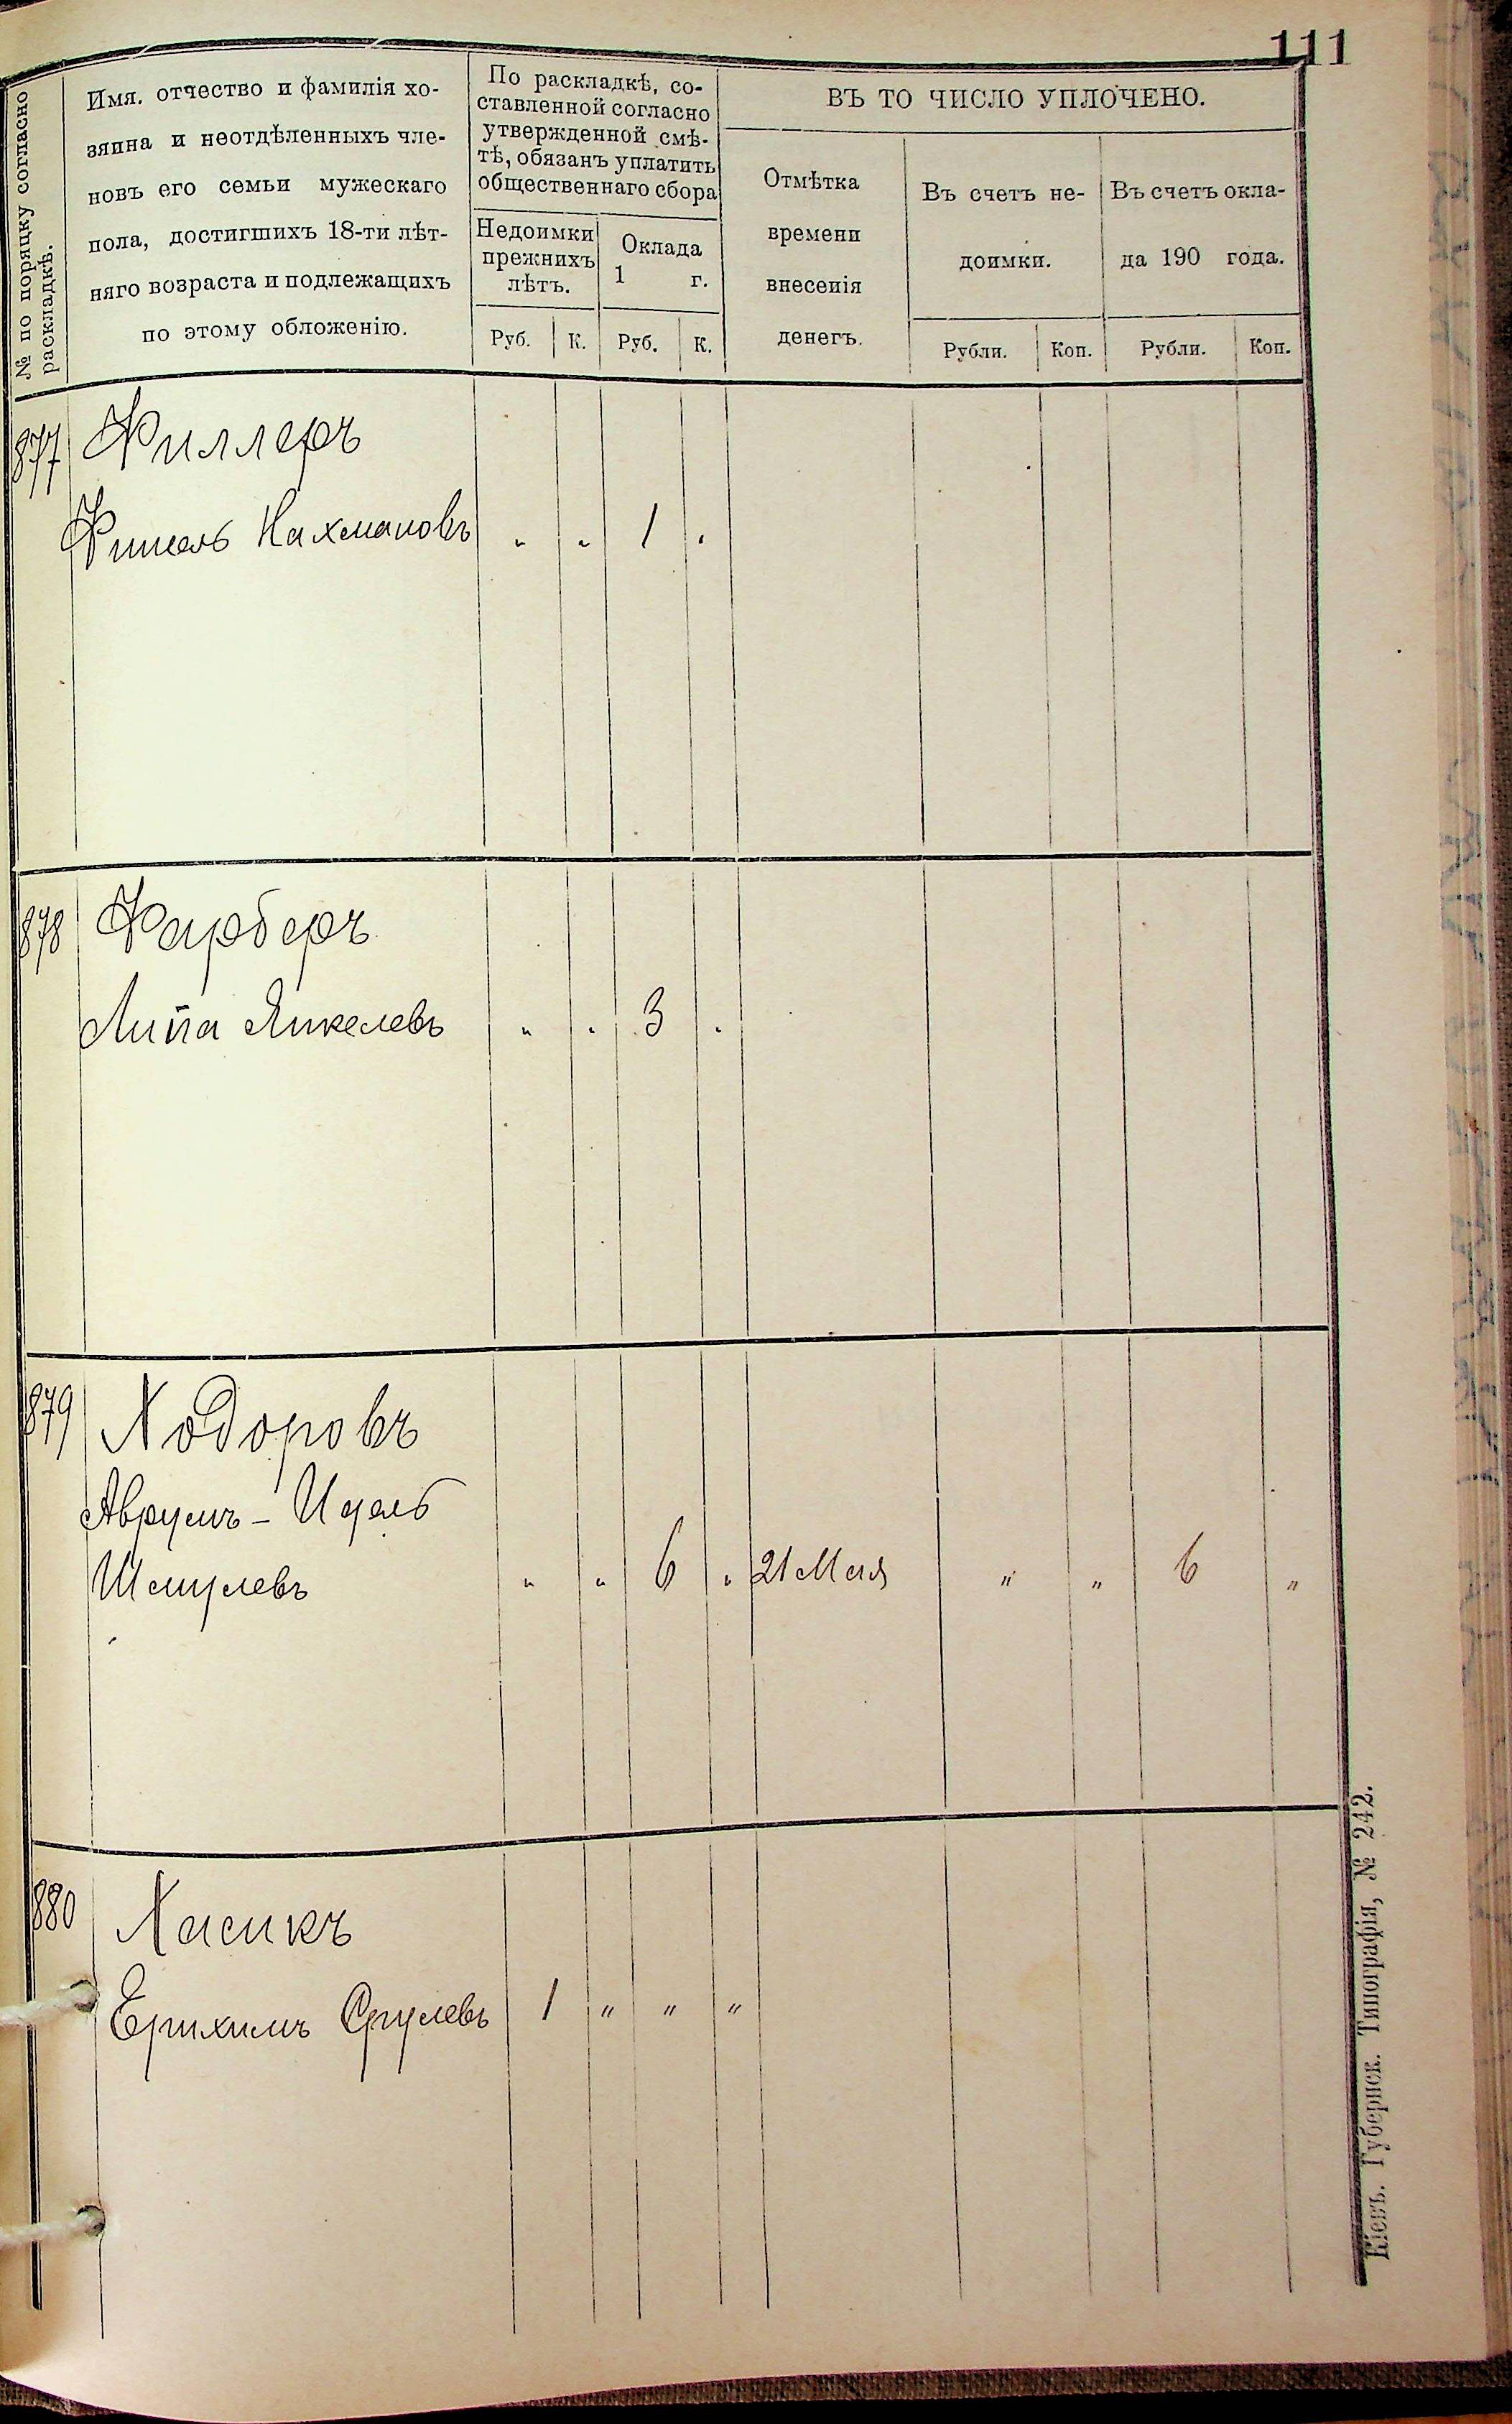 111
№ по порядку согласно
раскладкѣ.
Имя, отчество и фамилія хо-
зяина и неотдѣленныхъ чле-
новъ его семьи мужескаго
пола, достигшихъ 18-ти лѣт-
няго возраста и подлежащихъ
по этому обложенію.
По раскладкѣ, со-
ставленной согласно
утвержденной смѣ-
тѣ, обязанъ уплатить
общественнаго сбора
Недоимки
прежнихъ
лѣтъ.
Оклада
1 г.
Руб. К. Руб. К.
ВЪ ТО ЧИСЛО УПЛОЧЕНО.
Отмѣтка
времени
внесенія
денегъ.
Въ счетъ не-
доимки.
Въ счетъ окла-
да 190 года.
Рубли. Коп. Рубли. Коп.
877 Филлеръ
Нахмановъ „ „ 1 „
878 Фарберъ
Липа Янкелевъ „ „ 3 „
879 Ходоровъ
Аврумъ-Идель
Шмулевъ „ „ 6 „ 21 Мая „ „ 6 „
880 Хасикъ
Ерихимъ Срулевъ 1 „ „ „
Кіевъ. Губернск. Типографія, № 242.